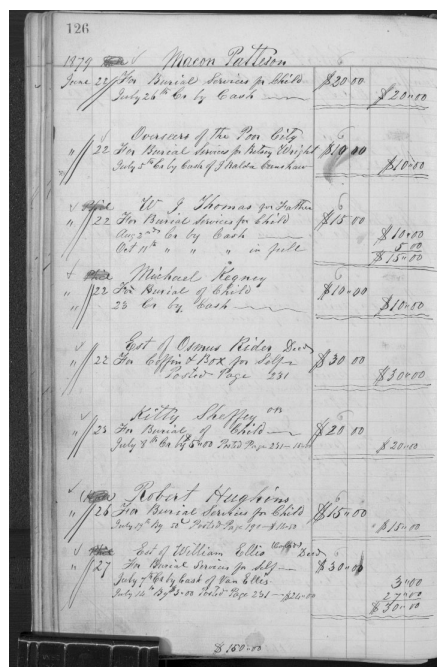 126
1879 Macon Patteson
June 22 For Burial Services for Child $20.00
July 26th Cr by Cash $20.00
Overseers of the Poor City
" 22 For Burial Services for Betsey Wright $10.00
July 5th Cr by Cash of J Crenshaw $10.00
W J Thomas for Father
" 22 For Burial Services for Child $15.00
Aug 2nd Cr by Cash $10.00
Oct 11th " " " in full 5.00
$15.00
Michael Kegney
" 22 For Burial of Child $10.00
" 23 Cr by Cash $10.00
Est of Osmus Rider Decd
" 22 For Coffin & Box for Self $30.00
Posted Page 231 $30.00
Kitty Sheffey
" 23 For Burial of Child $20.00
July 8th Cr by $5.00 Posted Page 231 $20.00
Robert Hughins
" 26 For Burial Services for Child $15.00
July 19th By Posted Page $15.00
Est of William Ellis Decd
" 27 For Burial Services for Self $30.00
July 7th Cr by Cash of Van Ellis 3.00
July 14th By $3.00 Posted Page 231 $24.00 27.00
$30.00
$150.00